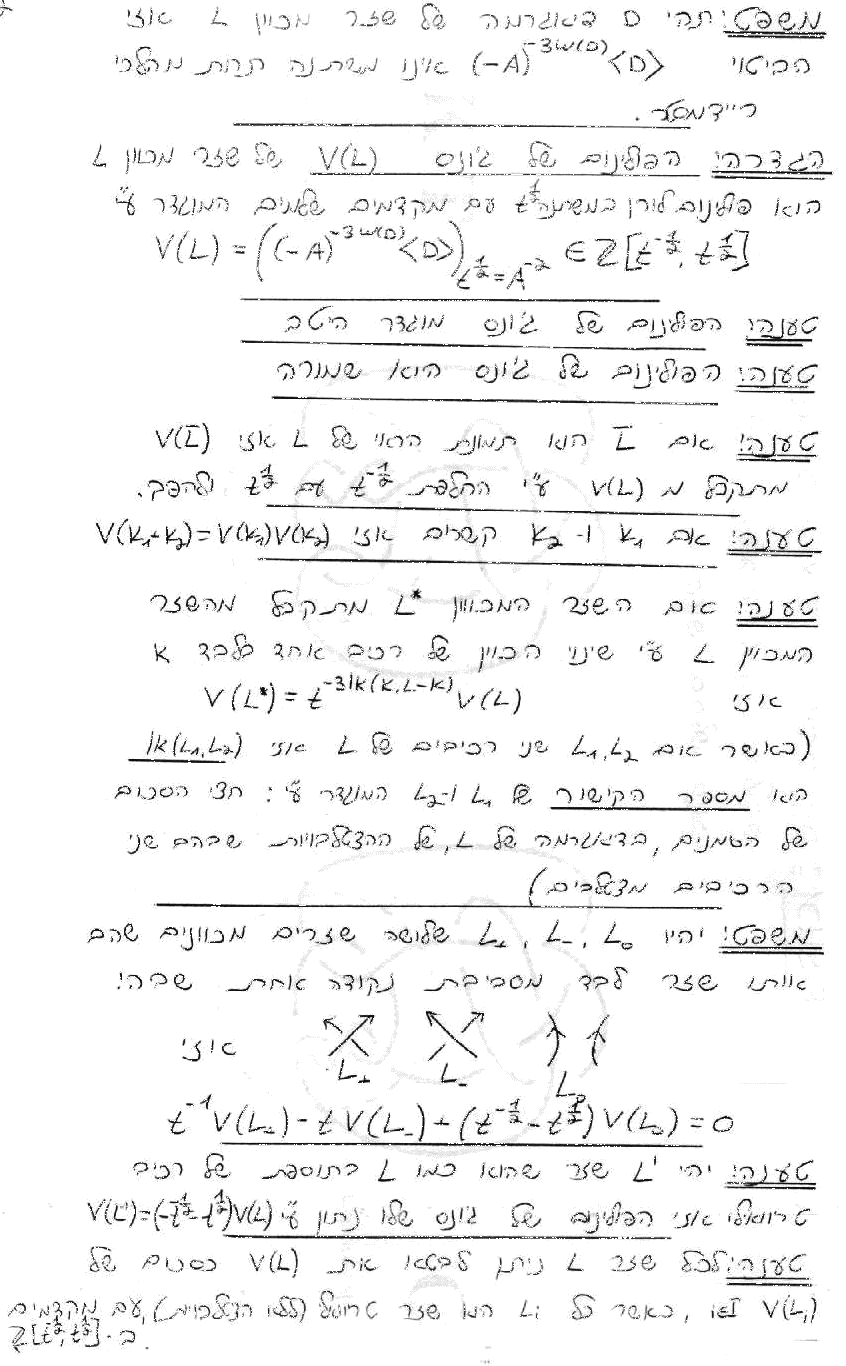 משפט: תהי D דיאגרמה של שזר מכוון L אזי
הביטוי (-A)^{-3w(D)}<D> אינו משתנה תחת מהלכי
ריידמסטר.
הגדרה: הפולינום של ג'ונס V(L) של שזר מכוון L
הוא פולינום לורן במשתנה t^{1/2} עם מקדמים שלמים המוגדר ע"י
V(L) = ((-A)^{-3w(D)}<D>)_{t^{1/2}=A^{-2}} ∈ Z[t^{-1/2}, t^{1/2}]
טענה: הפולינום של ג'ונס מוגדר היטב
טענה: הפולינום של ג'ונס הוא שמורה
טענה: אם L̄ הוא תמונת הראי של L אזי V(L̄)
מתקבל מ V(L) ע"י החלפת t^{-1/2} עם t^{1/2} ולהפך.
טענה: אם K₁ ו- K₂ קשרים אזי V(K₁+K₂)=V(K₁)V(K₂)
טענה: אם השזר המכוון L* מתקבל מהשזר
המכוון L ע"י שינוי הכוון של רכיב אחד בלבד K
אזי V(L*) = t^{-3lk(K,L-K)} V(L)
(כאשר אם L₁,L₂ שני רכיבים של L אזי lk(L₁,L₂)
הוא מספר הקישור של L₁ ו-L₂ המוגדר ע"י: חצי הסכום
של הסמנים, בדיאגרמה של L, של ההצטלבויות שבהם שני
הרכיבים מצטלבים)
משפט: יהיו L₊, L₋, L₀ שלושה שזרים מכוונים שהם
אותו שזר לבד מסביבת נקודה אחת שבה:
אזי L₊ L₋ L₀
t^{-1}V(L₊)-tV(L₋)+(t^{-1/2}-t^{1/2})V(L₀)=0
טענה: יהי L' שזר שהוא כמו L בתוספת של רכיב
טריוואלי אזי הפולינום של ג'ונס שלו נתון ע"י V(L')=(-t^{-1/2}-t^{1/2})V(L)
טענה: לכל שזר L ניתן לבטא את V(L) כסכום של
V(Lᵢ)-ים, כאשר כל Lᵢ הוא שזר טריוואלי (ללא הצטלבויות), עם מקדמים
ב- Z[t^{-1/2}, t^{1/2}].